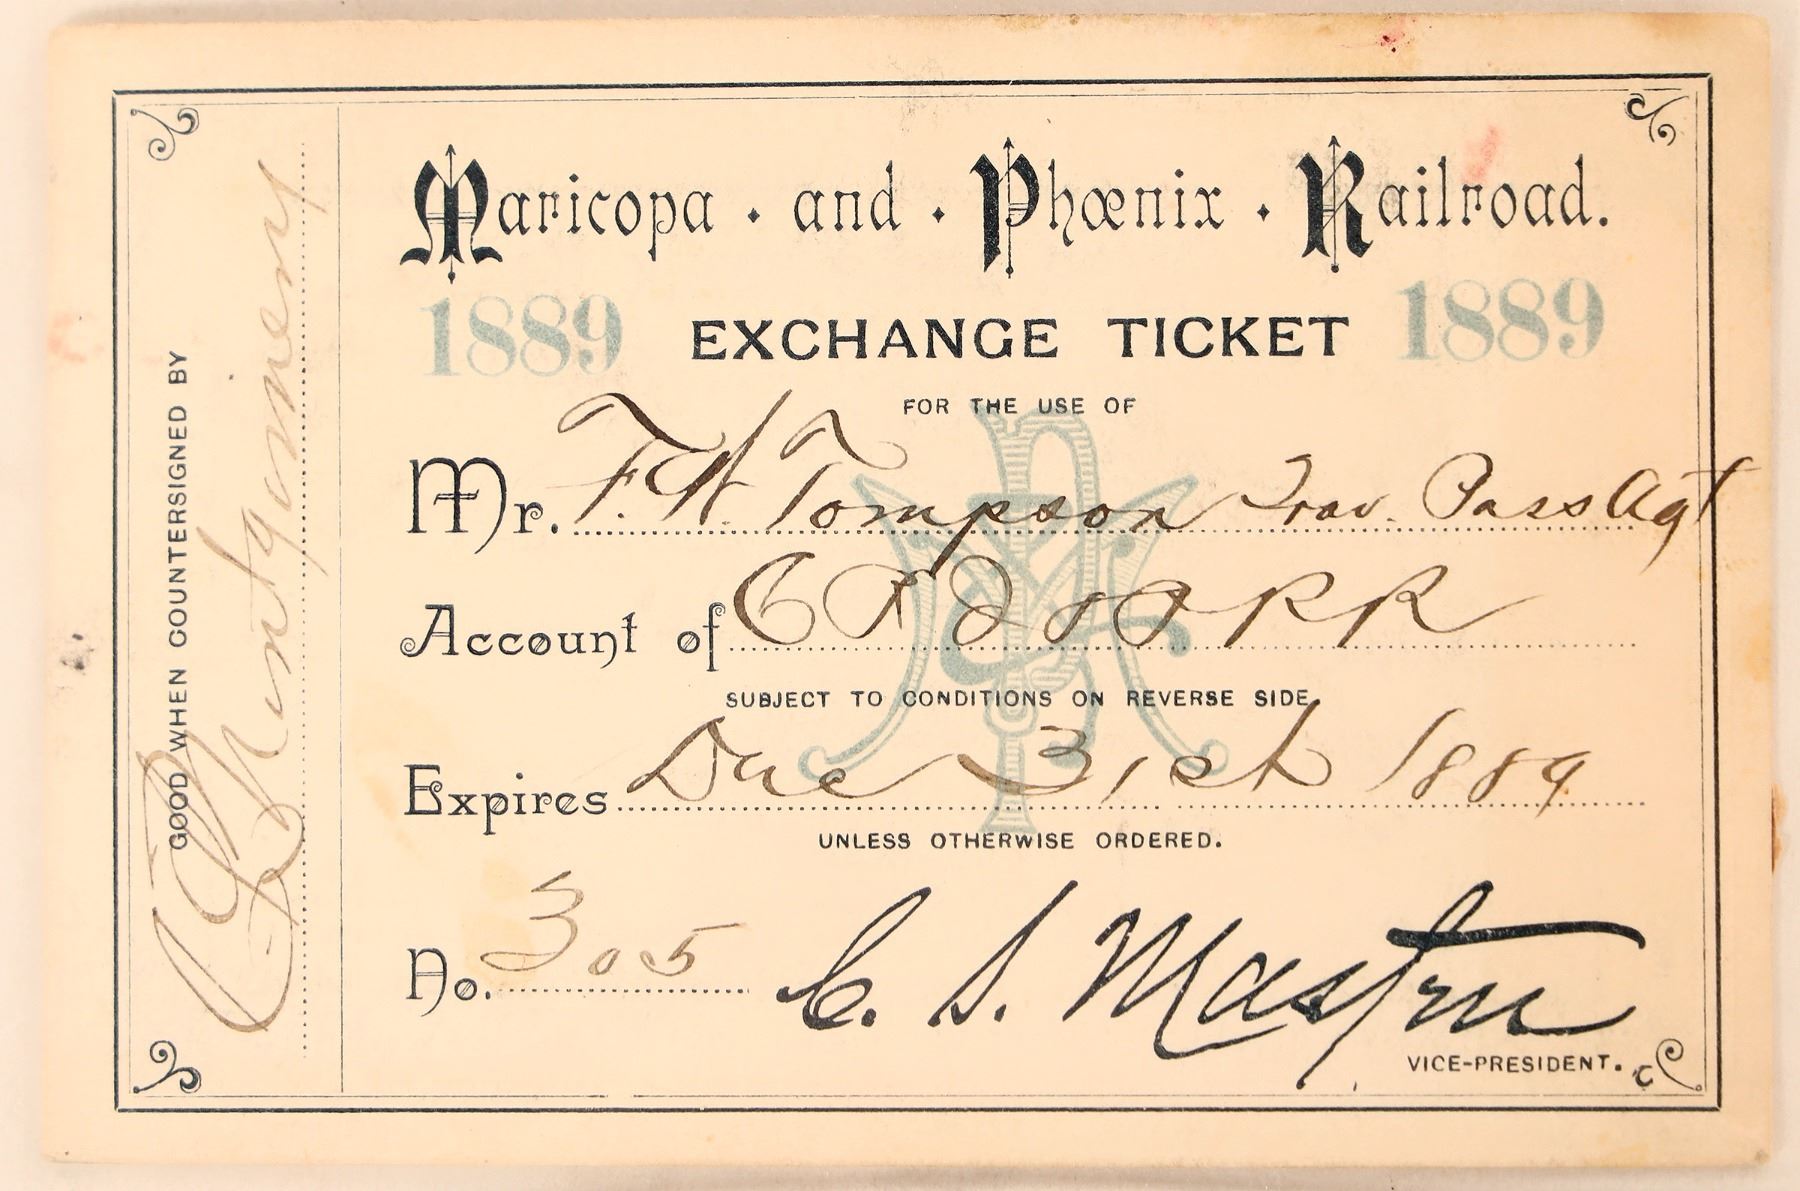 Maricopa · and · Phœnix · Railroad.
1889 EXCHANGE TICKET 1889
FOR THE USE OF
Mr. F. W. Tompson Trav. Pass Agt
Account of
SUBJECT TO CONDITIONS ON REVERSE SIDE,
Expires Dec 31st 1889
UNLESS OTHERWISE ORDERED.
No. 305 C. S. Masten
VICE-PRESIDENT.
GOOD WHEN COUNTERSIGNED BY